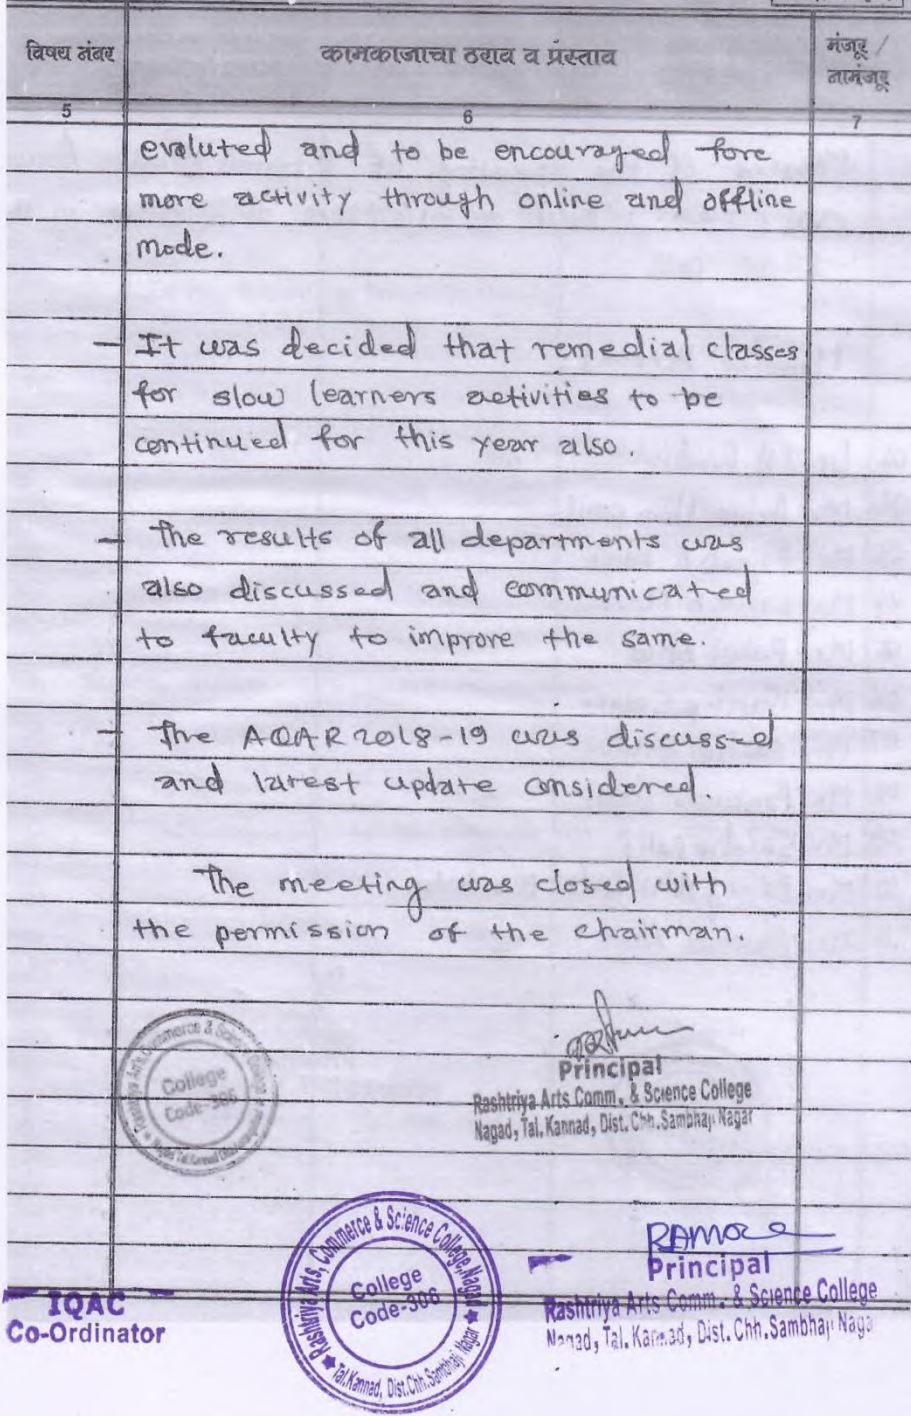 विषय नंबर
कामकाजाचा ठराव व प्रस्ताव
मंजूर /
नामंजूर
5
6
7
evaluted and to be encouraged fore
more activity through online and offline
mode.
- It was decided that remedial classes
for slow learners activities to be
continued for this year also.
- The results of all departments was
also discussed and communicated
to faculty to improve the same.
- The AQAR 2018-19 was discussed
and latest update considered.
The meeting was closed with
the permission of the chairman.
College
Code-306
Principal
Rashtriya Arts Comm. & Science College
Nagad, Tal. Kannad, Dist. Chh. Sambhaji Nagar
Rashtriya Arts, Commerce & Science College, Nagad
College
Code-306
Tal.Kannad, Dist.Chh.Sambhaji Nagar
RAMore
Principal
Rashtriya Arts Comm. & Science College
Nagad, Tal. Kannad, Dist. Chh. Sambhaji Naga
IQAC
Co-Ordinator